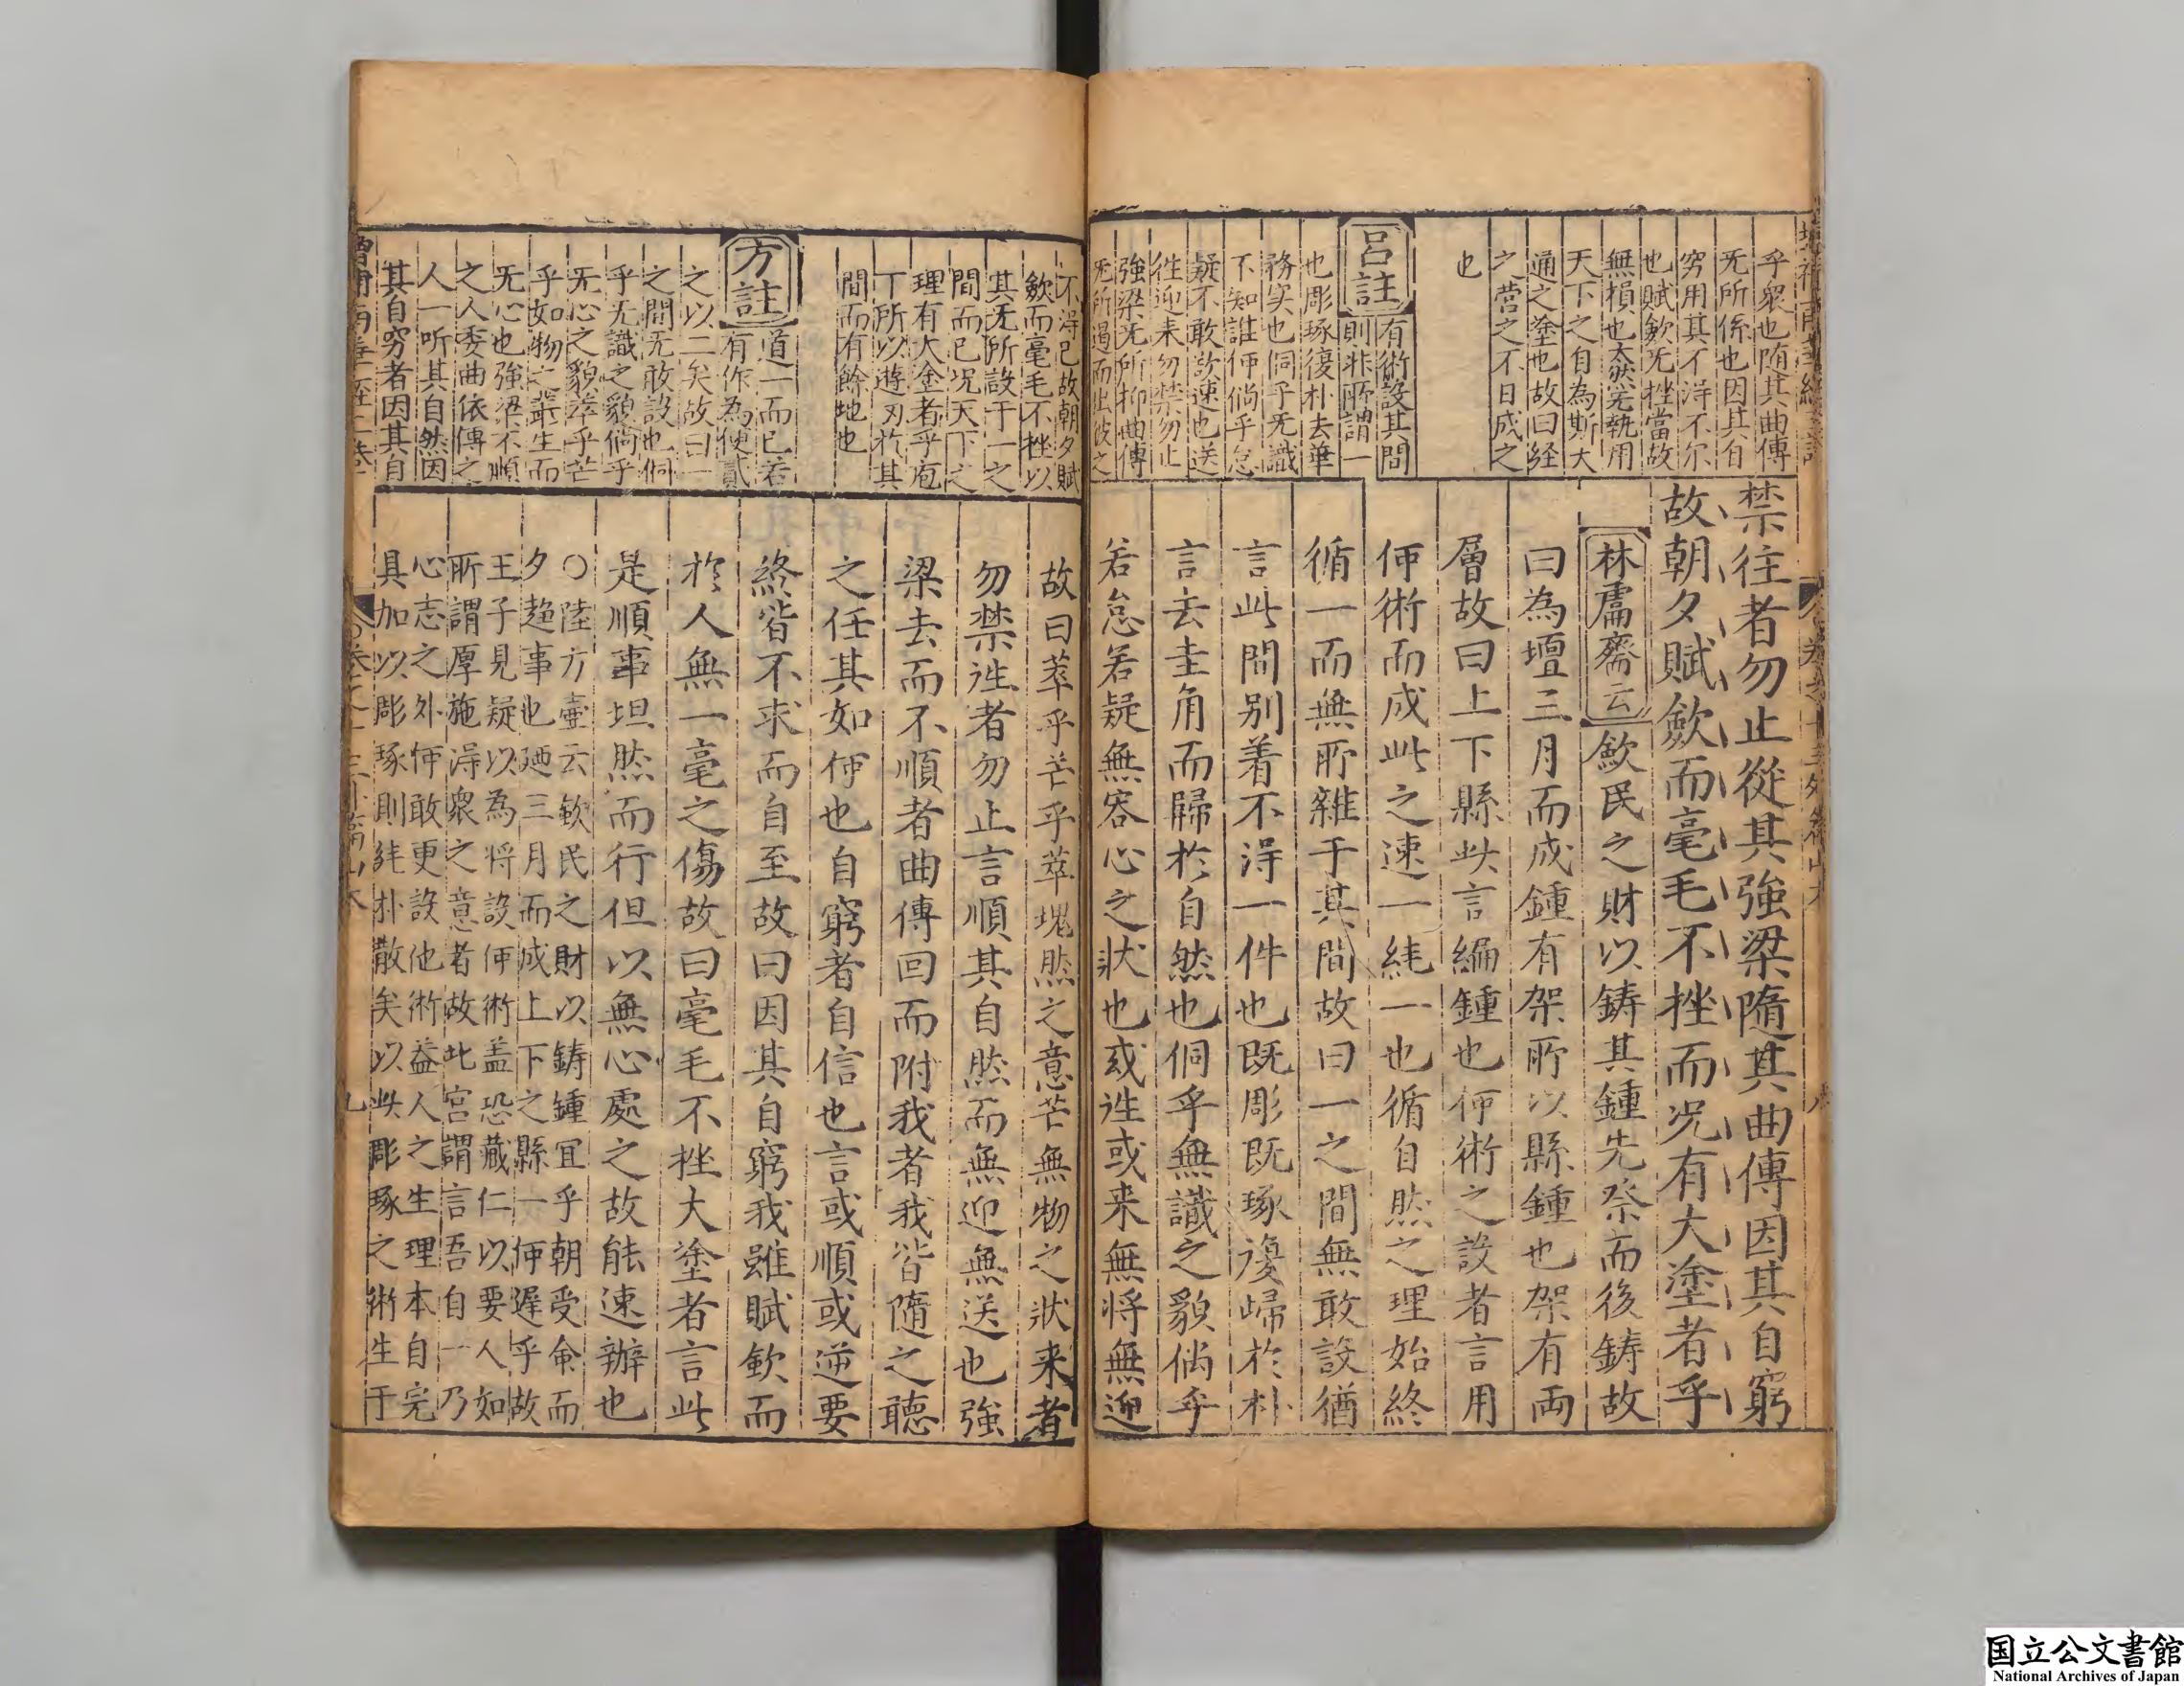 乎衆也随其曲傳
无所係也因其自
穷用其不淂不尔
也賦斂无挫當故
無損也太㪚完執用
天下之自為斯大
通之塗也故曰经
之营之不日成之
也
呂註
有術設其間
則非所謂一
也彫琢復朴去華
務实也侗乎无識
不知誰何倘乎怠
疑不敢欲速也送
徃迎来勿禁勿止
強梁无所抑曲傅
无所遏而出彼之
禁往者勿止從其強梁隨其曲傳因其自窮
故朝夕賦斂而毫毛不挫而况有大塗者乎
林鬳齋云
斂民之財以鋳其鍾先祭而後鋳故
曰為壇三月而成鍾有架所以縣鍾也架有両
層故曰上下縣此言編鍾也何術之設者言用
何術而成此之速一純一也循自然之理始終
循一而無所雜于其間故曰一之間無敢設猶
言此間別着不淂一件也既彫既琢復歸於朴
言去圭角而歸於自然也侗乎無識之貌倘乎
若怠若疑無容心之狀也或徃或来無将無迎
不淂已故朝夕賦
斂而毫毛不挫以
其无所設于一之
間而已况天下之
理有大塗者乎庖
丁所以遊刃於其
間而有餘地也
方註
道一而已若
有作為便貳
之以二矣故曰一
之間无敢設也侗
乎无識之貌倘乎
无心之貌萃乎芒
乎如物之叢生而
无心也強梁不順
之人委曲依傅之
人一听其自然因
其自穷者因其自
故曰萃乎芒乎萃塊然之意芒無物之狀来者
勿禁徃者勿止言順其自然而無迎無送也強
梁去而不順者曲傅回而附我者我皆隨之聴
之任其如何也自窮者自信也言或順或逆要
終皆不求而自至故曰因其自窮我雖賦斂而
於人無一毫之傷故曰毫毛不挫大塗者言此
是順事坦然而行但以無心處之故能速辦也
○陸方壷云斂民之財以鋳鍾宜乎朝受命而
夕趋事也廼三月而成上下之縣一何遅乎故
王子見疑以為将設何術盖恐藏仁以要人如
所謂厚施淂衆之意者故北宫謂言吾自一乃
心志之外何敢更設他術益人之生理本自完
具加以彫琢則純朴散矣以此彫琢之術生于
九
国立公文書館
National Archives of Japan